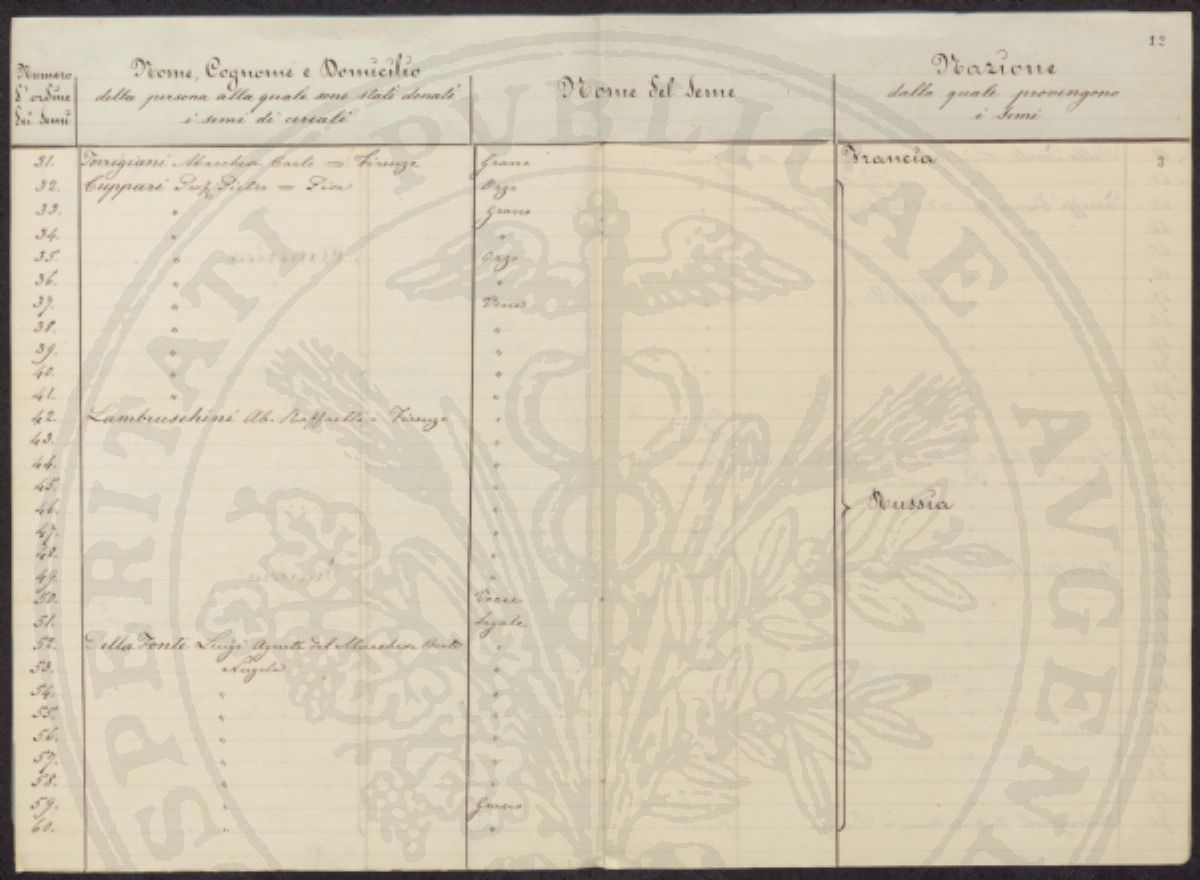 12
Numero d'ordine dei Semi
Nome, Cognome e Domicilio
della persona alla quale sono stati donati
i semi di cereali
Nome del Seme
Nazione
dalla quale provengono
i Semi
31. Torrigiani Marchese Carlo = Firenze Grano Francia 3
32. Cuppari Prof. Pietro = Pisa Orzo
33. " Grano
34. " "
35. " Orzo
36. " "
37. " Vena
38. " "
39. " "
40. " "
41. " "
42. Lambruschini Ab. Raffaello = Firenze "
43. "
44. "
45. "
46. " Russia
47. "
48. "
49. "
50.
51. Segale
52. Della Fonte Luigi Agente del Marchese "
53. Angelo "
54. " "
55. " "
56. " "
57. " "
58. " "
59. " Grano
60. " "
SPERITATI PUBLICAE AUGEN